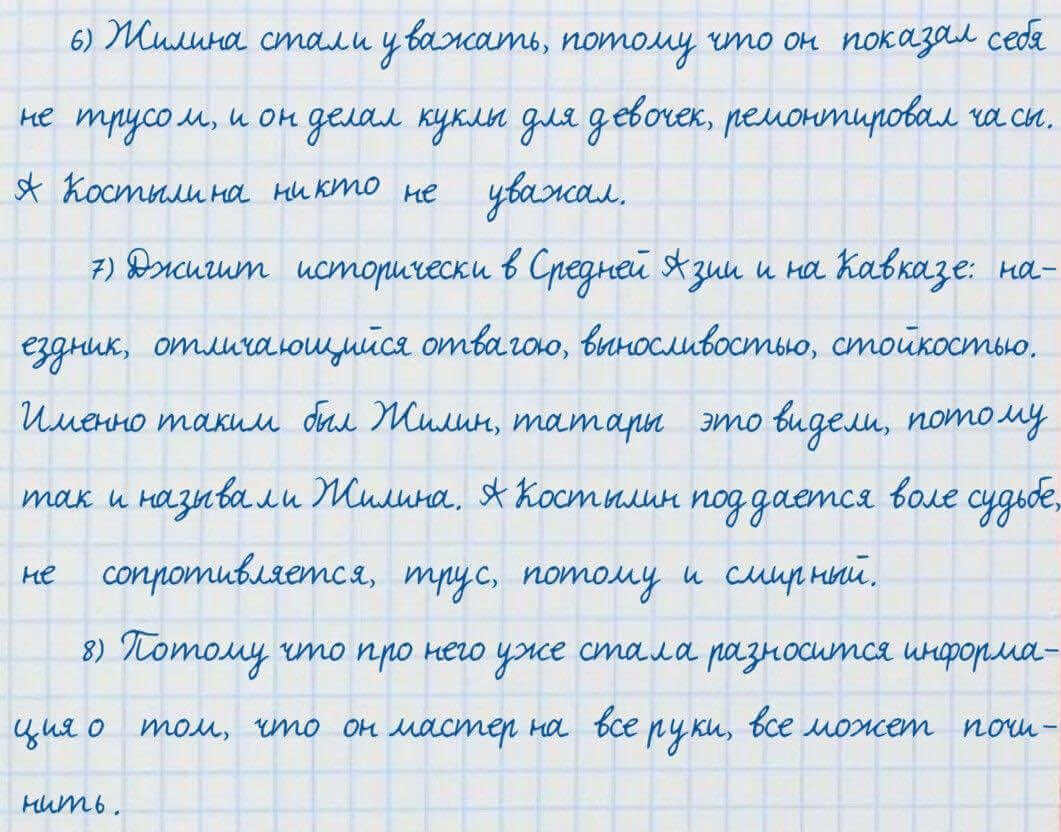 6) Жилина стали уважать, потому что он показал себя
не трусом, и он делал куклы для девочек, ремонтировал часы.
А Костылина никто не уважал.
7) Джигит исторически в Средней Азии и на Кавказе: на-
ездник, отличающийся отвагою, выносливостью, стойкостью.
Именно таким был Жилин, татары это видели, потому
так и называли Жилина. А Костылин поддается воле судьбе,
не сопротивляется, трус, потому и смирный.
8) Потому что про него уже стала разносится информа-
ция о том, что он мастер на все руки, все может почи-
нить.